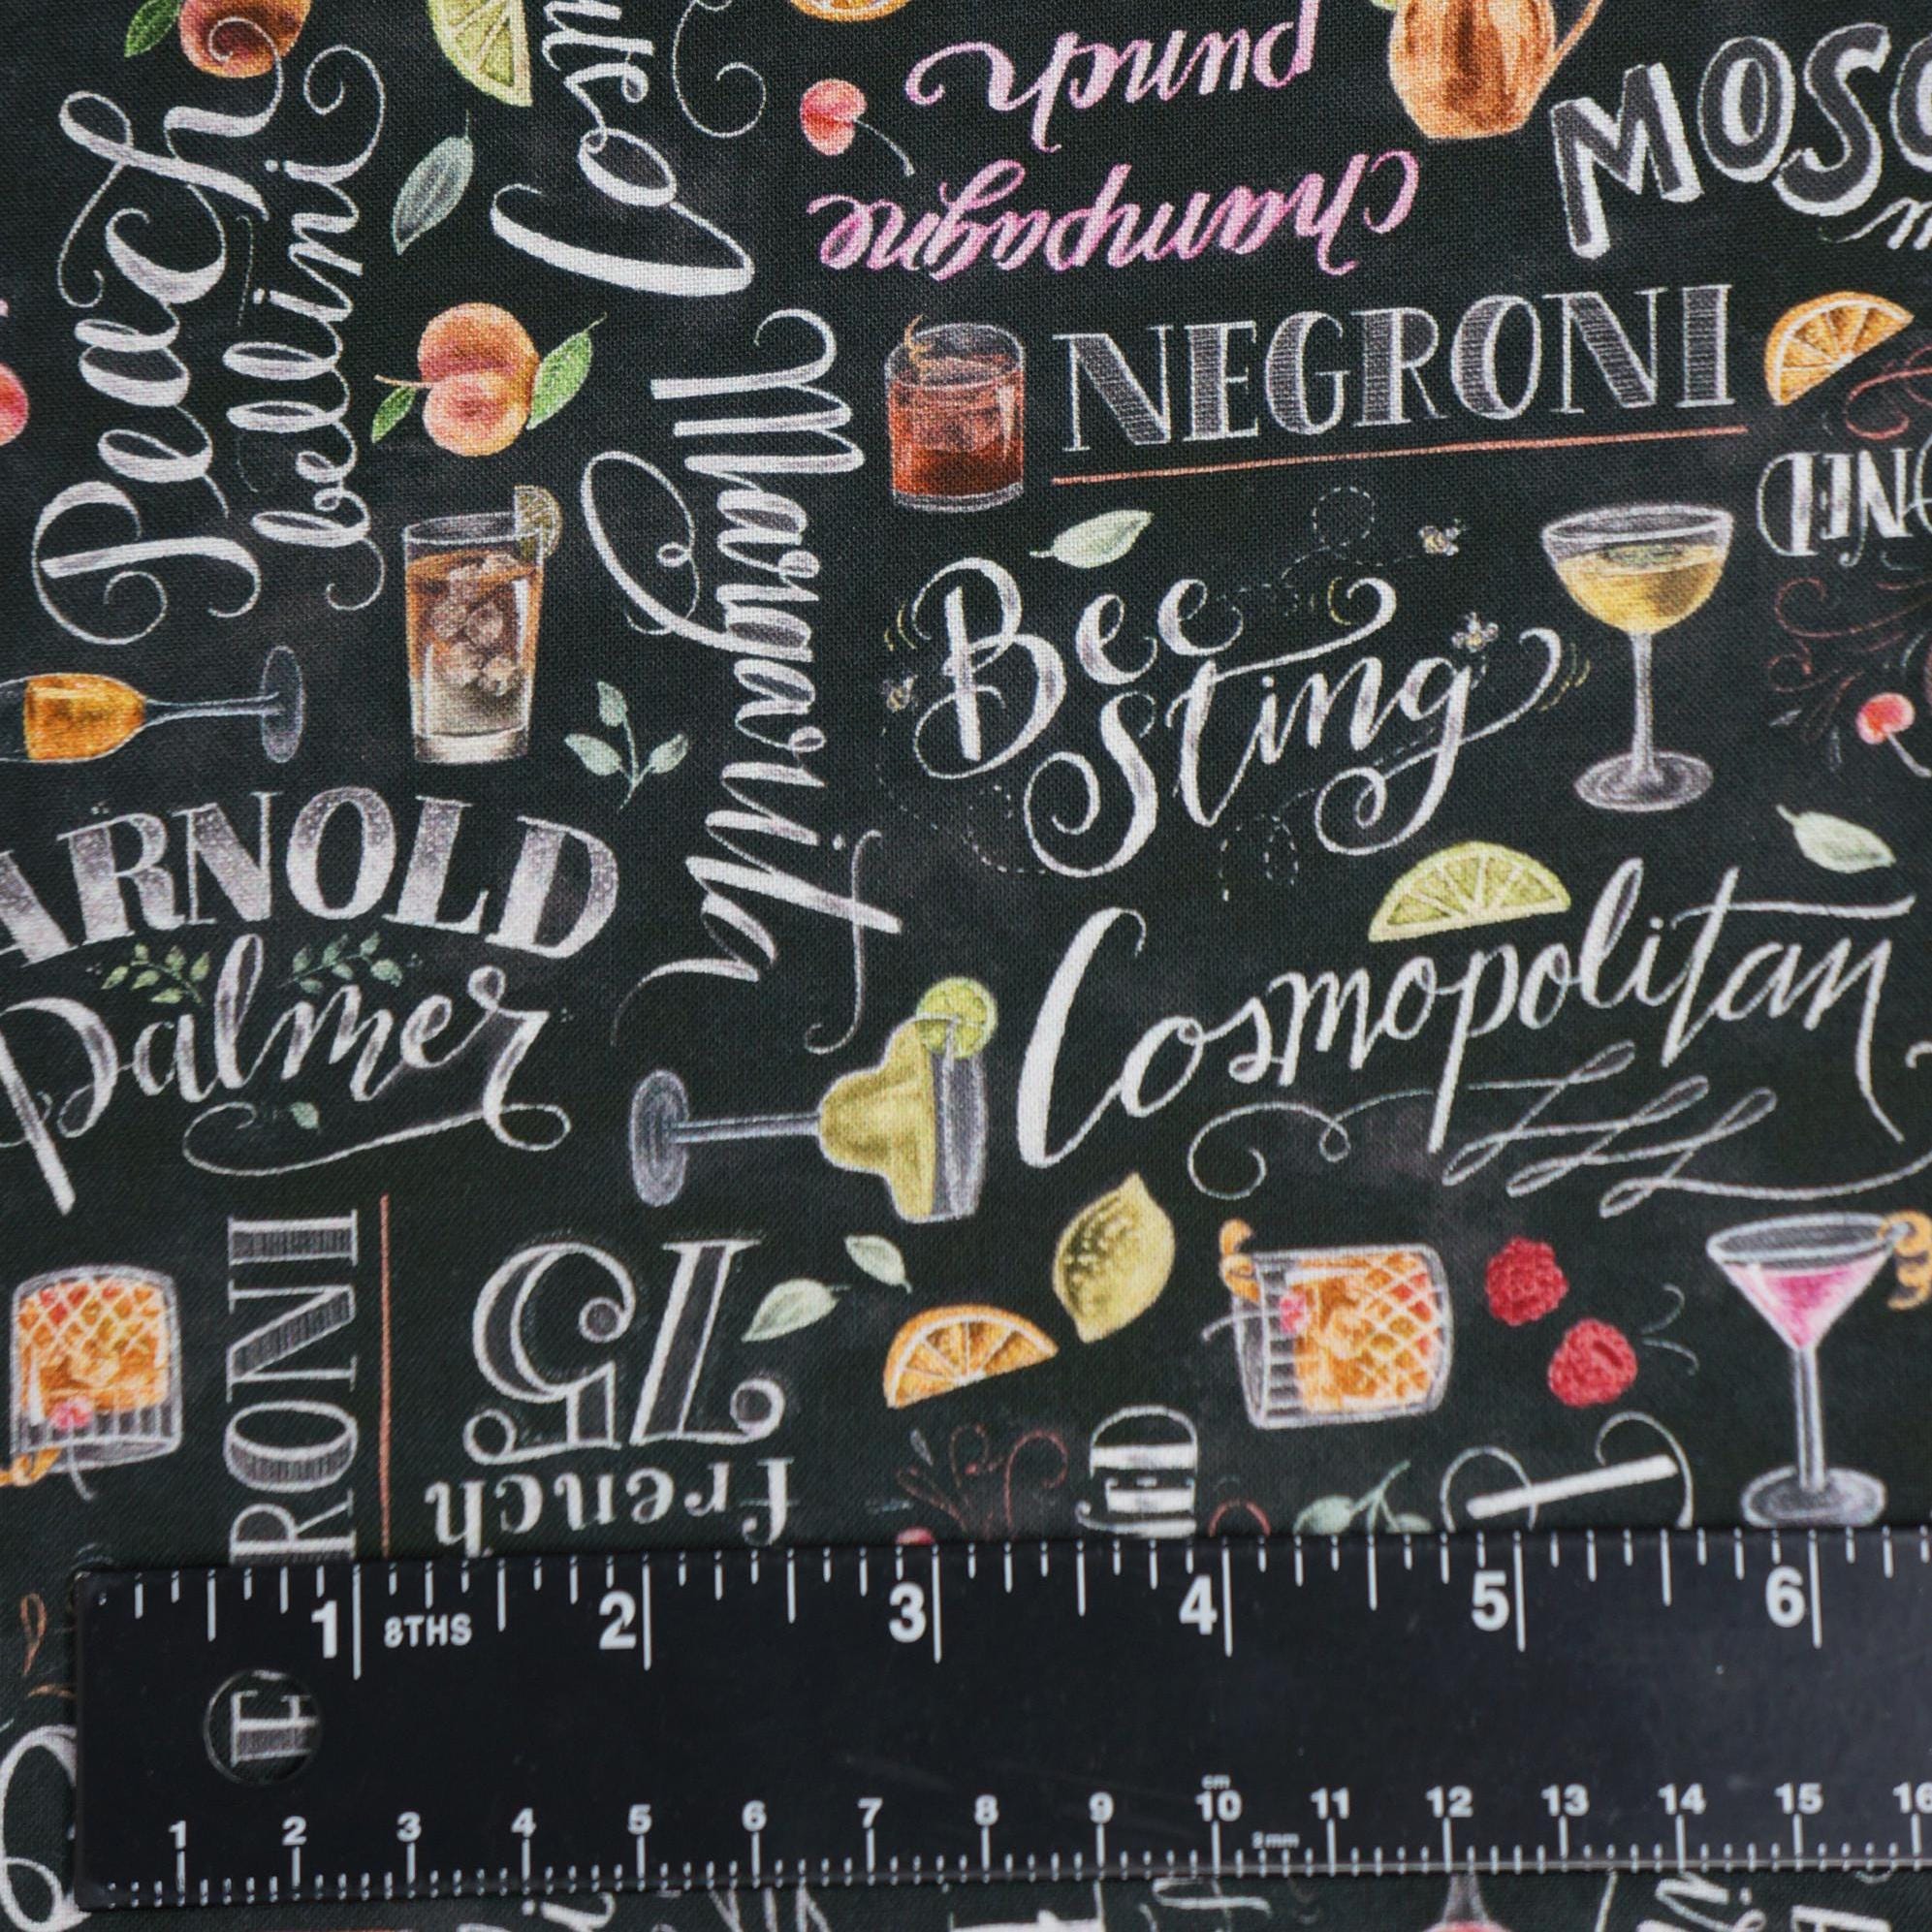 Peach
bellini
Champagne
punch
MOSC
NEGRONI
Margarita
Bee
Sting
ARNOLD
Palmer
Cosmopolitan
RONI
French
75
1 8THS 2 3 4 5 6
cm
1 2 3 4 5 6 7 8 9 10 11 12 13 14 15 16
2mm